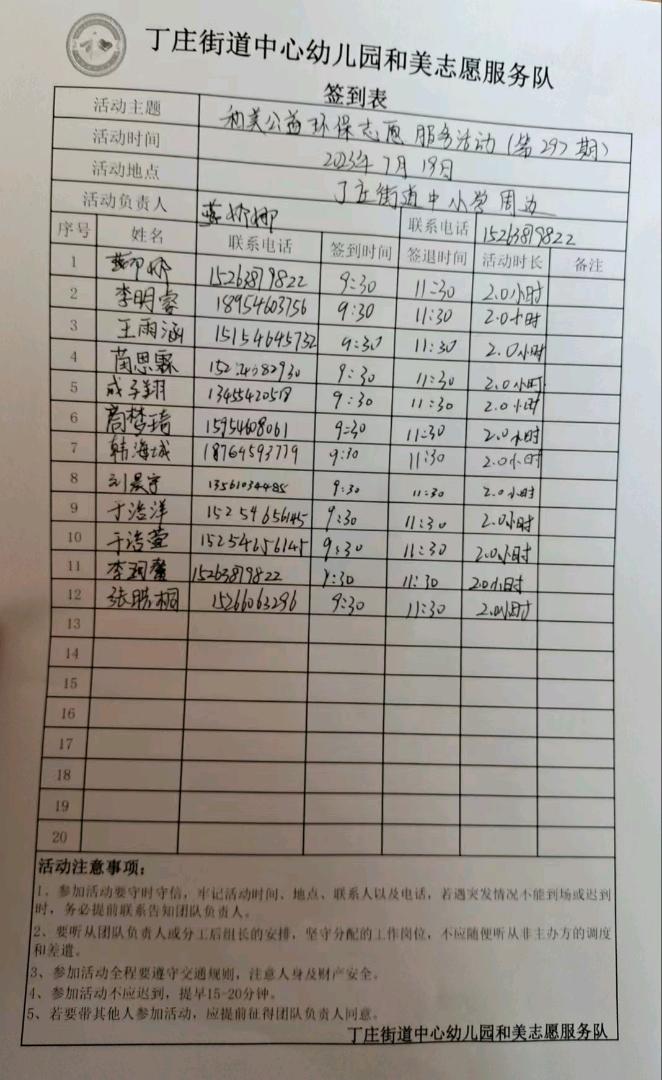 丁庄街道中心幼儿园和美志愿服务队
签到表
活动主题 和美公益环保志愿服务活动(第297期)
活动时间 2023年7月19日
活动地点 丁庄街道中小学周边
活动负责人 娜 联系电话 15263819822
序号 姓名 联系电话 签到时间 签退时间 活动时长 备注
1 娜 15263819822 9:30 11:30 2.0小时
2 李明睿 18954603756 9:30 11:30 2.0小时
3 王雨涵 15154645732 9:30 11:30 2.0小时
4 思霖 9:30 11:30 2.0小时
5 成子翔 9:30 11:30 2.0小时
6 商梦琦 15954608061 9:30 11:30 2.0小时
7 韩海城 18764593779 9:30 11:30 2.0小时
8 刘昊宇 13561034485 9:30 11:30 2.0小时
9 于浩洋 15254656145 9:30 11:30 2.0小时
10 于浩萱 15254656145 9:30 11:30 2.0小时
11 李 15263819822 9:30 11:30 2.0小时
12 张 桐 15266063296 9:30 11:30 2.0小时
13
14
15
16
17
18
19
20
活动注意事项:
1、参加活动要守时守信,牢记活动时间、地点、联系人以及电话,若遇突发情况不能到场或迟到
时,务必提前联系告知团队负责人。
2、要听从团队负责人或分工后组长的安排,坚守分配的工作岗位,不应随便听从非主办方的调度
和差遣。
3、参加活动全程要遵守交通规则,注意人身及财产安全。
4、参加活动不应迟到,提早15-20分钟。
5、若要带其他人参加活动,应提前征得团队负责人同意。
丁庄街道中心幼儿园和美志愿服务队